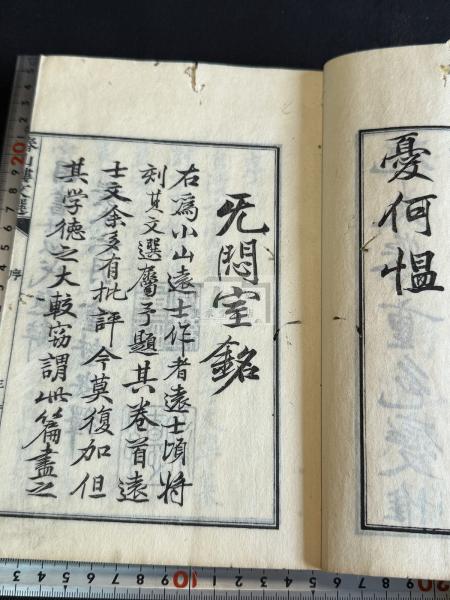 憂何慍
旡悶室銘
右為小山遠士作者遠士頃将
刻其文選屬予題其卷首遠
士文余多有批評今莫復加但
其学徳之大較窃謂此篇盡之
序
三
20
10